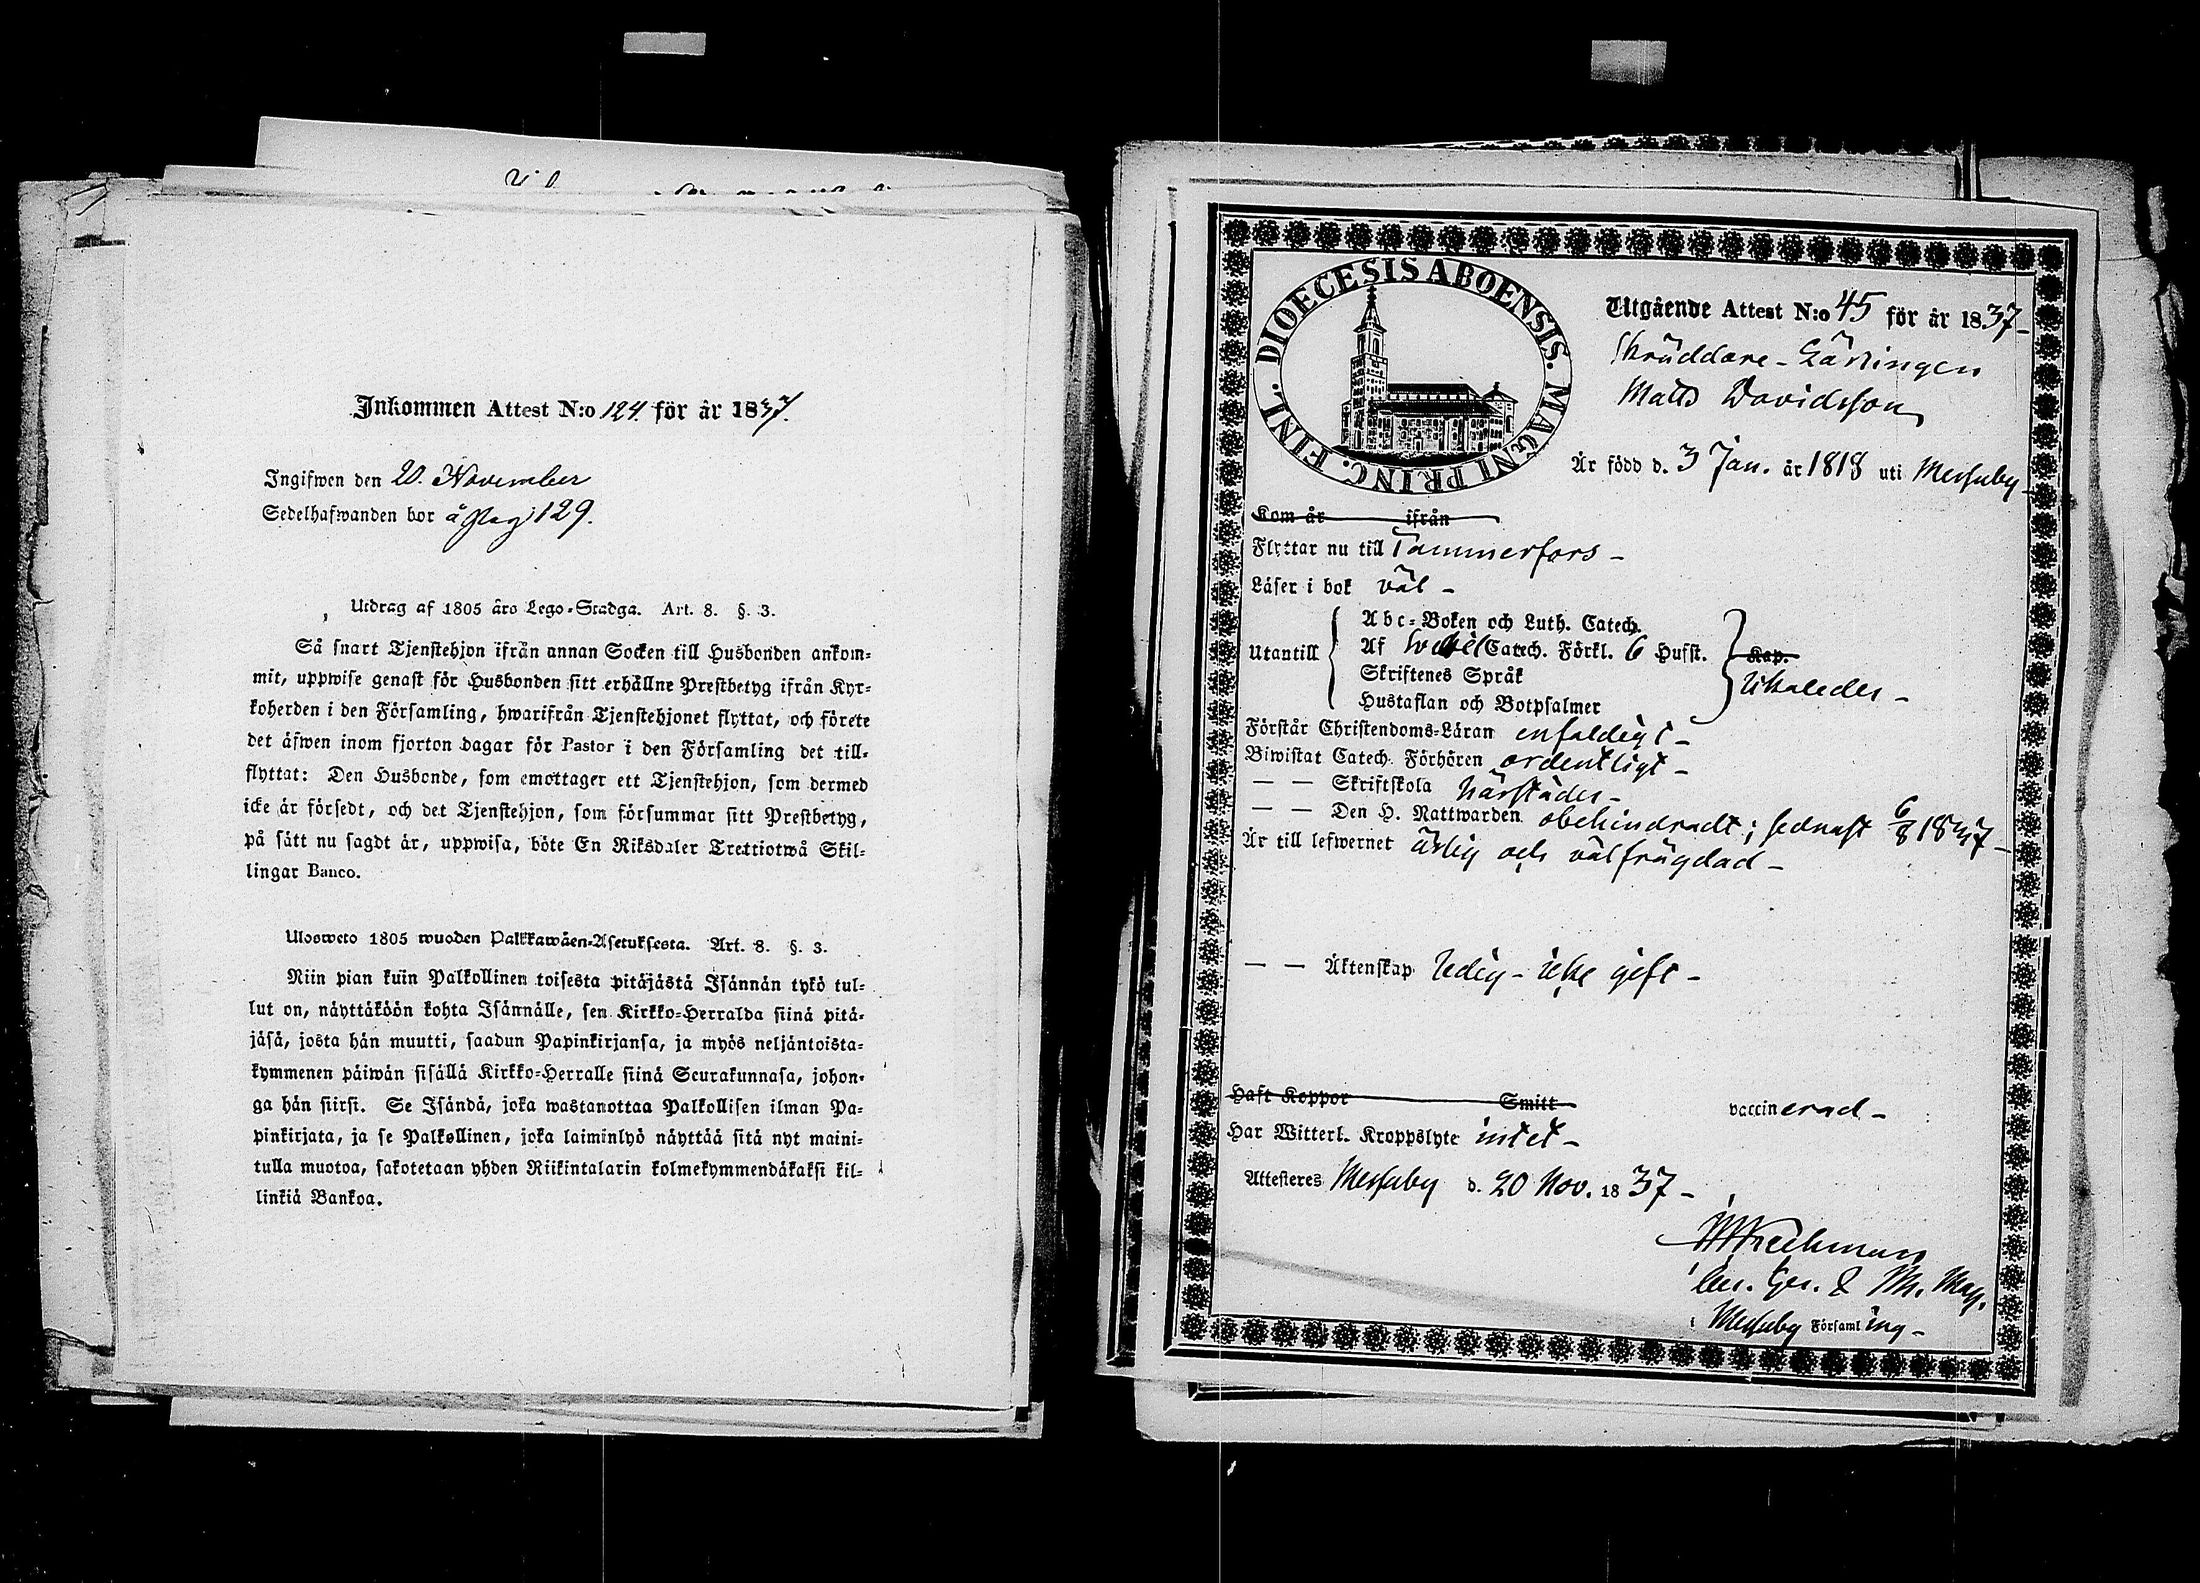 Inkommen Attest N:o 124 för år 1837.
Ingifwen den 20. November
Sedelhafwanden bor å pag 129.
Utdrag af 1805 års Lego-Stadga. Art. 8. §. 3.
Så snart Tjenstehjon ifrån annan Socken till Husbonden ankom-
mit, uppwise genast för Husbonden sitt erhållne Prestbetyg ifrån Kyr-
koherden i den Församling, hwarifrån Tjenstehjonet flyttat, och förete
det äfwen inom fjorton dagar för Pastor i den Församling det till-
flyttat: Den Husbonde, som emottager ett Tjenstehjon, som dermed
icke är försedt, och det Tjenstehjon, som försummar sitt Prestbetyg,
på sätt nu sagdt är, uppwisa, böte En Riksdaler Trettiotwå Skil-
lingar Banco.
Ulosweto 1805 wuoden Palkkawäen-Asetuksesta. Art. 8. §. 3.
Niin pian kuin Palkollinen toisesta pitäjästä Isännän tykö tul-
lut on, näyttäköön kohta Isännälle, sen Kirkko-Herralda siinä pitä-
jäsä, josta hän muutti, saadun Papinkirjansa, ja myös neljäntoista-
kymmenen päiwän sisällä Kirkko-Herralle siinä Seurakunnasa, johon-
ga hän siirsi. Se Isändä, joka wastanottaa Palkollisen ilman Pa-
pinkirjata, ja se Palkollinen, joka laiminlyö näyttää sitä nyt maini-
tulla muotoa, sakotetaan yhden Riikintalarin kolmekymmendäkaksi kil-
linkiä Bankoa.
DIOECESIS ABOENSIS. MAGNI PRINC. FINL.
Utgående Attest N:o 45 för år 1837-
Skräddare-Lärlingen
Matts Davidsson
Är född d. 3 Jan. år 1818 uti Messuby
Kom år ifrån
Flyttar nu till Tammerfors -
Läser i bok väl -
Utantill
Abc-Boken och Luth. Catech.
Af Catech. Förkl. 6 Hufst.
Skriftenes Språk
Hustaflan och Botpsalmer
Kap.
Förstår Christendoms-Läran enfaldigt -
Biwistat Catech. Förhören ordentligt -
— — Skriftskola härstädes -
— — Den H. Nattwarden obehindradt; sednast 6/8 1837 -
Är till lefwernet ärlig och välfrägdad -
— — Äktenskap ledig - icke gift -
Haft Koppor Smitt vaccinerad -
Har Witterl. Kroppslyte intet -
Attesteres Messuby d. 20 Nov. 1837 -
i Messuby Församling -